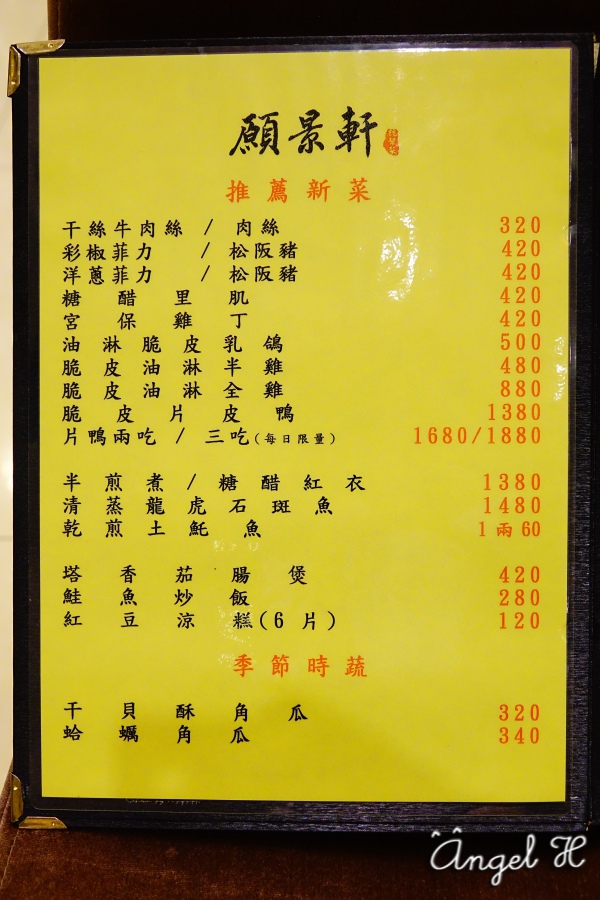 願景軒
推薦新菜
干絲牛肉絲 / 肉絲 320
彩椒菲力 / 松阪豬 420
洋蔥菲力 / 松阪豬 420
糖醋里肌 420
宮保雞丁 420
油淋脆皮乳鴿 500
脆皮油淋半雞 480
脆皮油淋全雞 880
脆皮片皮鴨 1380
片鴨兩吃 / 三吃(每日限量) 1680/1880
半煎煮 / 糖醋紅衣 1380
清蒸龍虎石斑魚 1480
乾煎土魠魚 1兩60
塔香茄腸煲 420
鮭魚炒飯 280
紅豆涼糕(6片) 120
季節時蔬
干貝酥角瓜 320
蛤蠣角瓜 340
Ângel H